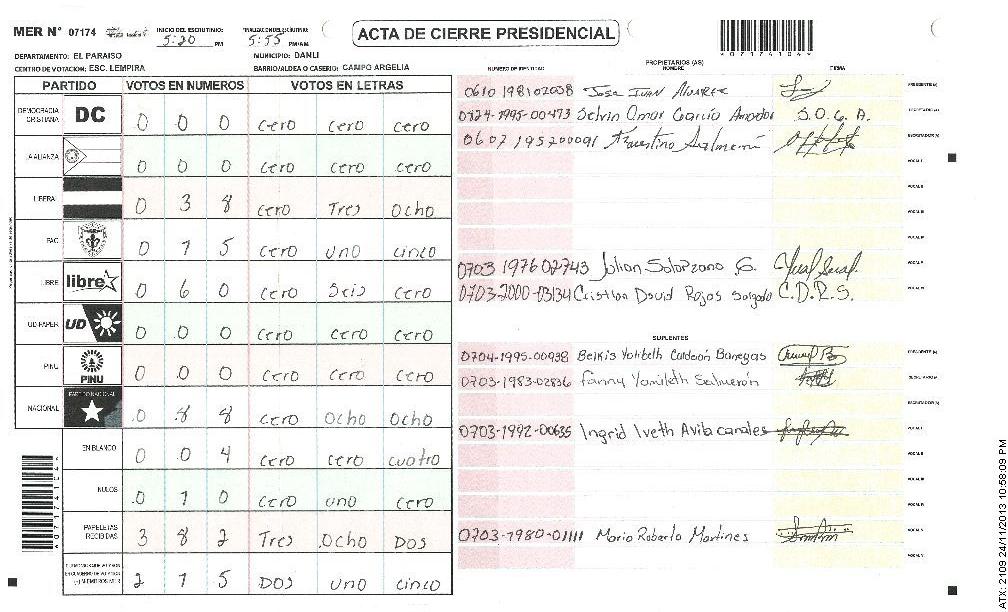 MER N° 07174
INICIO DEL ESCRUTINIO: 5:20 PM
FINALIZACION DEL ESCRUTINIO: 5:55 PM/AM
ACTA DE CIERRE PRESIDENCIAL
DEPARTAMENTO: EL PARAISO
MUNICIPIO: DANLI
CENTRO DE VOTACION: ESC. LEMPIRA
BARRIO/ALDEA O CASERIO: CAMPO ARGELIA
PARTIDO VOTOS EN NUMEROS VOTOS EN LETRAS
DEMOCRACIA CRISTIANA DC 0 0 0 cero cero cero
ALIANZA 0 0 0 cero cero cero
LIBERAL 0 3 8 cero Tres ocho
PAC 0 1 5 cero uno cinco
LIBRE libre 0 6 0 cero Seis cero
UD-FAPER UD 0 0 0 cero cero cero
PINU PINU 0 0 0 cero cero cero
NACIONAL PARTIDO NACIONAL 0 8 8 cero ocho ocho
EN BLANCO 0 0 4 cero cero cuatro
NULOS 0 1 0 cero uno cero
PAPELETAS RECIBIDAS 3 8 2 Tres Ocho DOS
2 1 5 DOS uno cinco
*07174104*
PROPIETARIOS (AS)
NUMERO DE IDENTIDAD NOMBRE FIRMA
0610 198102038 Jose Juan Alvarez PRESIDENTE (A)
0824-1995-00473 Selvin Omar Garcia Amador S.O.G.A. SECRETARIO (A)
0607 195200091 Faustino Salmerón ESCRUTADOR (A)
VOCAL I
VOCAL II
VOCAL III
VOCAL IV
0703 1976 02743 Julian Solorzano G. VOCAL V
0703-2000-03134 Cristian David Rojas Salgado C.D.R.S. VOCAL VI
SUPLENTES
0704-1995-00938 Belkis Yolibeth Calderon Banegas PRESIDENTE (A)
0703-1983-02836 Fanny Yamileth Salmerón SECRETARIO (A)
ESCRUTADOR (A)
0703-1992-00635 Ingrid Iveth Avila canales VOCAL I
VOCAL II
VOCAL III
VOCAL IV
0703-1980-01111 Mario Roberto Martines VOCAL V
VOCAL VI
*07174104*
ATX: 2109 24/11/2013 10:58:09 PM